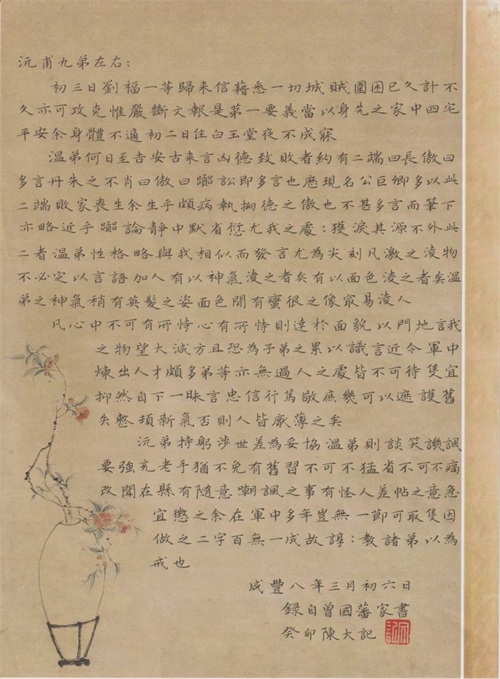 沅甫九弟左右:
初三日劉福一等歸来信藉悉一切城賊圍困已久計不
久亦可攻克惟嚴斷文報是第一要義當以身先之家中四宅
平安余身體不適初二日住白玉堂夜不成寐
温弟何日至吉安古来言凶德致敗者約有二端曰長傲曰
多言丹朱之不肖曰傲曰嚚訟即多言也歷現名公巨卿多以此
二端敗家喪生余生乎頗病執拗德之傲也不甚多言而筆下
亦略近乎嚚論靜中默省愆尤我之處:獲戾其源不外此
二者温弟性格略與我相似而發言尤為尖刻凡激之淩物
不必定以言語加人有以神氣淩之者矣有以面色淩之者矣温
弟之神氣稍有英髮之姿面色間有蠻很之像寂易淩人
凡心中不可有所恃心有所恃則達於面貌以門地言我
之物望大減方且恐為子弟之累以識言近今軍中
煉出人才頗多弟等亦無過人之處皆不可恃隻宜
抑然自下一昧言忠信行篤敬庶幾可以遮護舊
失整頓新氣否則人皆厭薄之矣
沅弟持躬涉世差為妥協温弟則談笑譏諷
要強充老手猶不免有舊習不可不猛省不可不痛
改聞在縣有隨意嘲諷之事有怪人差帖之意急
宜懲之余在軍中多年豈無一節可取隻因
傲之二字百無一成故諄:教諸弟以為
戒也
咸豐八年三月初六日
錄自曾國藩家書
癸卯陳大記